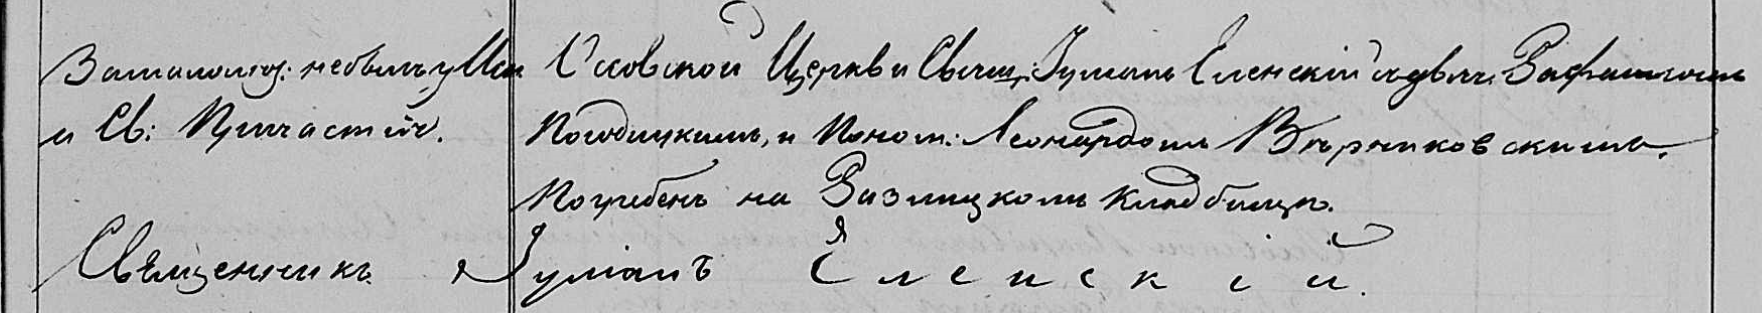 За малолѣт: не былъ у Исп.
и Св: Причастія.
Уссовской Церкви Свящ: Іуліанъ Еленскій съ дьяч.
Погодицкимъ, и Поном: Леонардомъ Вѣрниковскимъ.
Погребенъ на Разлицкомъ кладбищѣ.
Священникъ Іуліанъ Еленскій.